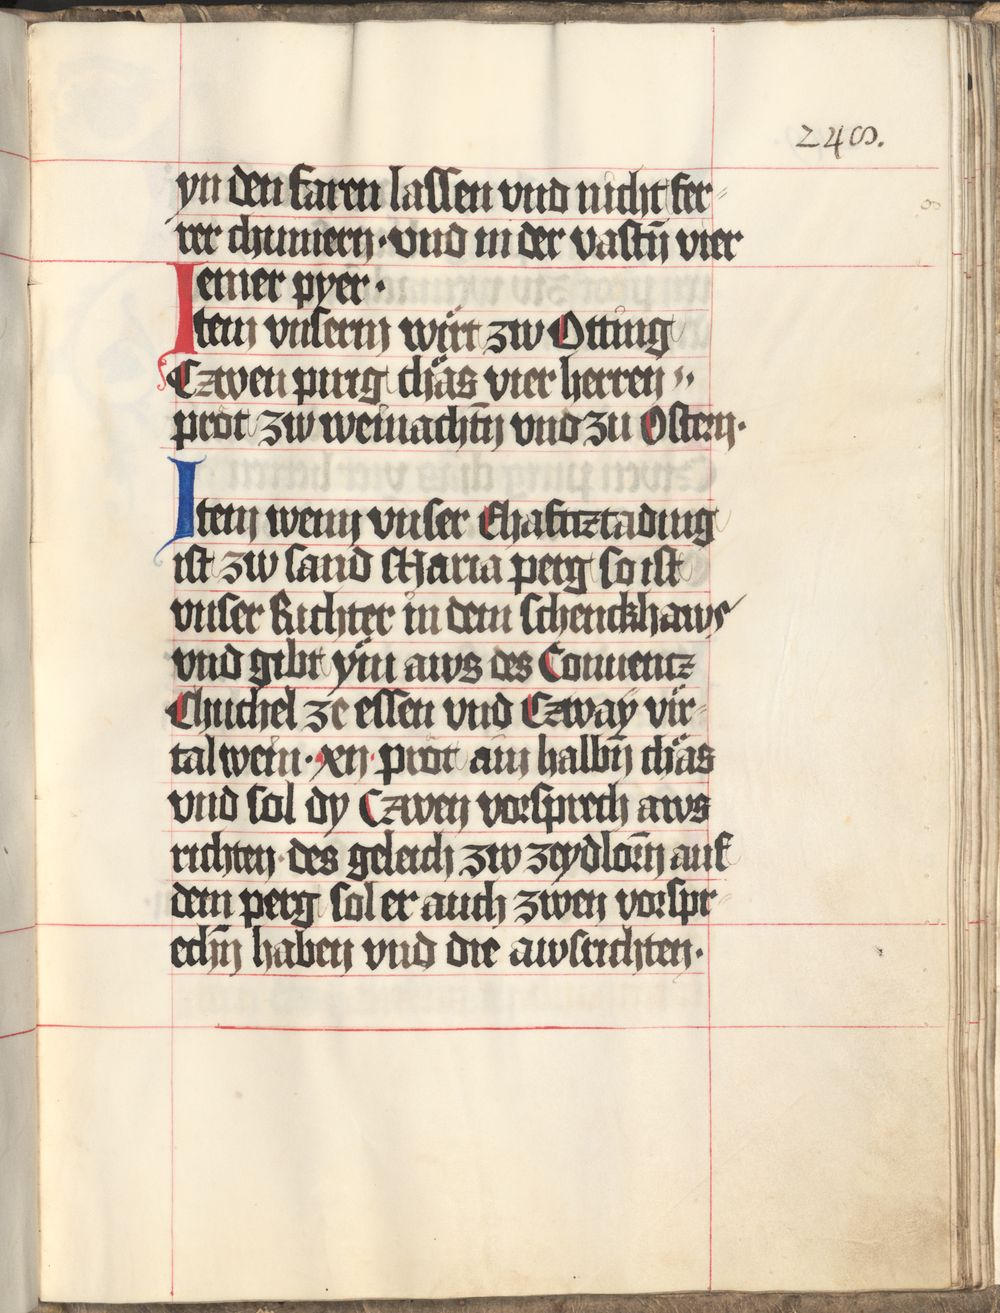 248.
yn den karen lassen vnd nicht fer-
rer chumern · vnd in der vastn̄ vier
emer pyer ·
Item vnserm wirt zw Otting
Czwen purg chäs vier herren
prot zw weinachtn̄ vnd zu Ostern ·
Item wenn vnser Ehaftztading
ist zw sand Maria perg so ist
vnser Richter in dem schenckhaws
vnd gibt ym aws des Conuentz
Chuchel ze essen vnd Czway vir-
tal wein · xij · prot ain halbn̄ chäs
vnd sol dy Czwen vorsprech aws
richten · des geleich zw zeydlorn̄ auf
dem perg sol er auch zwen vorspr-
echn̄ haben vnd die awsrichten ·